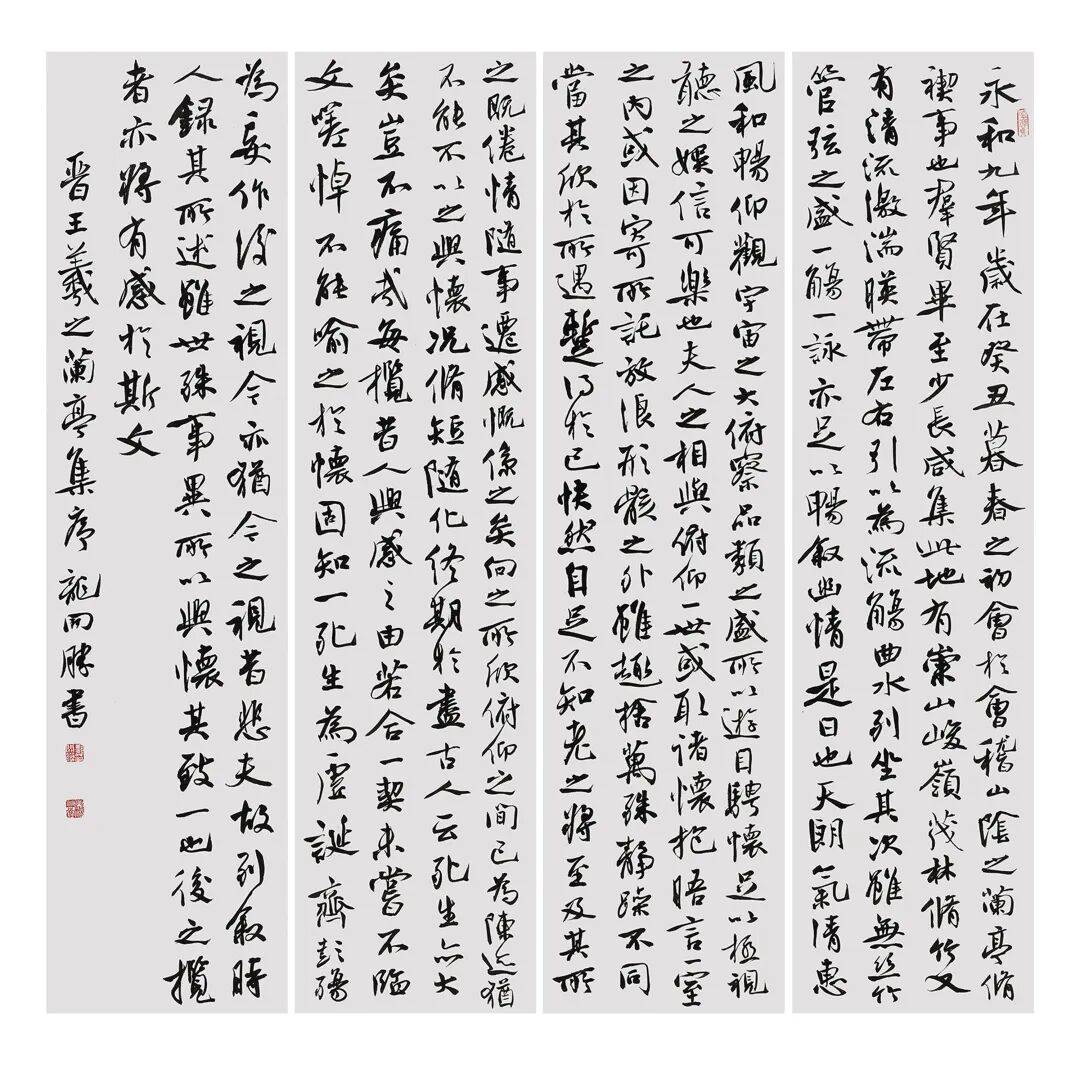 永和九年歲在癸丑暮春之初會於會稽山陰之蘭亭脩
禊事也羣賢畢至少長咸集此地有崇山峻嶺茂林脩竹又
有清流激湍暎帶左右引以為流觴曲水列坐其次雖無絲竹
管弦之盛一觴一詠亦足以暢敘幽情是日也天朗氣清惠
風和暢仰觀宇宙之大俯察品類之盛所以遊目騁懷足以極視
聽之娛信可樂也夫人之相與俯仰一世或取諸懷抱晤言一室
之內或因寄所託放浪形骸之外雖趣捨萬殊靜躁不同
當其欣於所遇暫得於己快然自足不知老之將至及其所
之既倦情隨事遷感慨係之矣向之所欣俯仰之間已為陳迹猶
不能不以之興懷況脩短隨化終期於盡古人云死生亦大
矣豈不痛哉每攬昔人興感之由若合一契未嘗不臨
文嗟悼不能喻之於懷固知一死生為虛誕齊彭殤
為妄作後之視今亦猶今之視昔悲夫故列敘時
人錄其所述雖世殊事異所以興懷其致一也後之攬
者亦將有感於斯文
晉王羲之蘭亭集序 龍開勝書